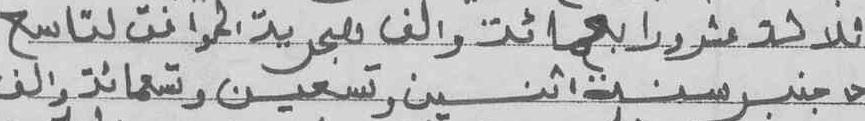 ثلاثة عشر ورابعمائة والف هجرية الموافق لتاسع
دجنبر سنة اثنين وتسعين وتسعمائة والف